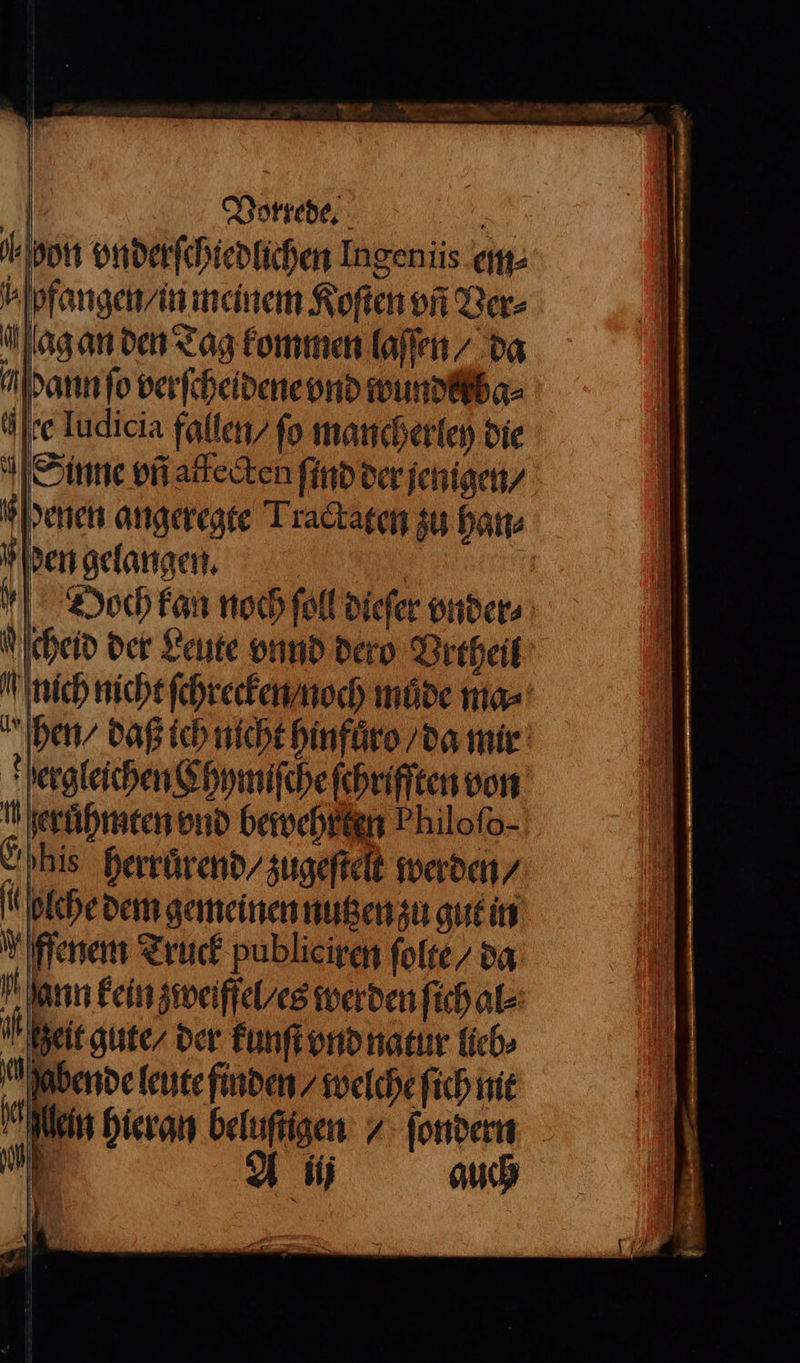 Vorrede.
von vnderſchiedlichen Ingeniis em⸗
pfangen/in meinem Koſten vñ Ver⸗
lag an den Tag kommen laſſen / da
dann ſo verſcheidene vnd wunderba⸗
re Iudicia fallen/ ſo mancherley die
Sinne vñ affecten ſind der jenigen/
denen angeregte Tractaten zu han⸗
den gelangen.
Doch kan noch ſoll dieſer vnder⸗
ſcheid der Leute vnnd dero Vrtheil
mich nicht ſchrecken/noch muͤde ma⸗
chen/ daß ich nicht hinfuͤro /da mir
dergleichen Chymiſche ſchrifften von
beruͤhmten vnd bewehrten Philoſo-
phis herruͤrend/zugeſtelt werden/
ſolche dem gemeinen nutzen zu gut in
offenem Truck publiciren ſolte/ da
dann kein zweiffel/es werden ſich al⸗
lzeit gute/ der kunſt vnd natur lieb⸗
habende leute finden / welche ſich nit
allein hieran beluſtigen / ſondern
A iij auch